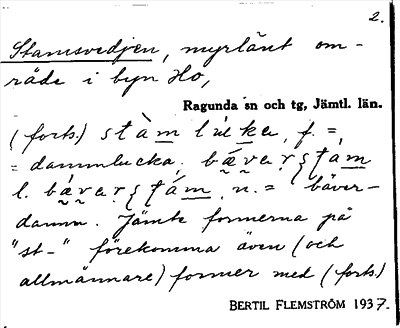 2.
Stamsvedjen, myrlänt om-
råde i byn Ho,
Ragunda sn och tg, Jämtl. län.
(forts.) stàm lu̇kka, f. =
= dammlucka; bǽvarʃtám
l. bǽvarʃtám, n. = bäver-
damm. Jämte formerna på
"st-" förekomma även (och
allmännare) former med (forts.)
BERTIL FLEMSTRÖM 1937.